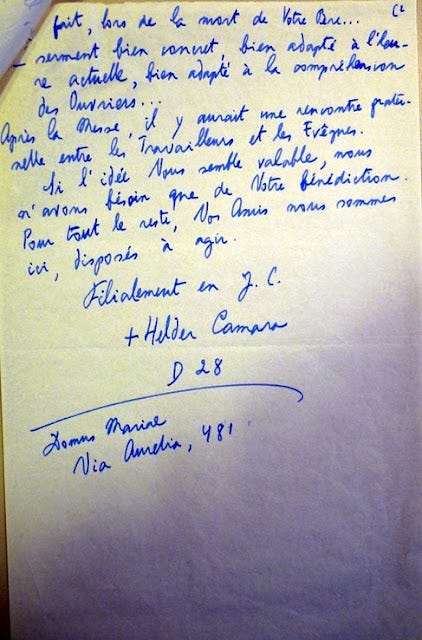 fait, lors de la mort de Votre Père...
- serment bien concret, bien adapté à l'heu-
re actuelle, bien adapté à la compréhension
des Ouvriers...
Après la Messe, il y aurait une rencontre frater-
nelle entre les Travailleurs et les Evêques.
Si l'idée Vous semble valable, nous
n'avons bésoin que de Votre bénédiction.
Pour tout le reste, Vos Amis nous sommes
ici, disposés à agir.
Filialement en J. C.
+ Helder Camara
D 28
Domus Mariae
Via Aurelia, 481